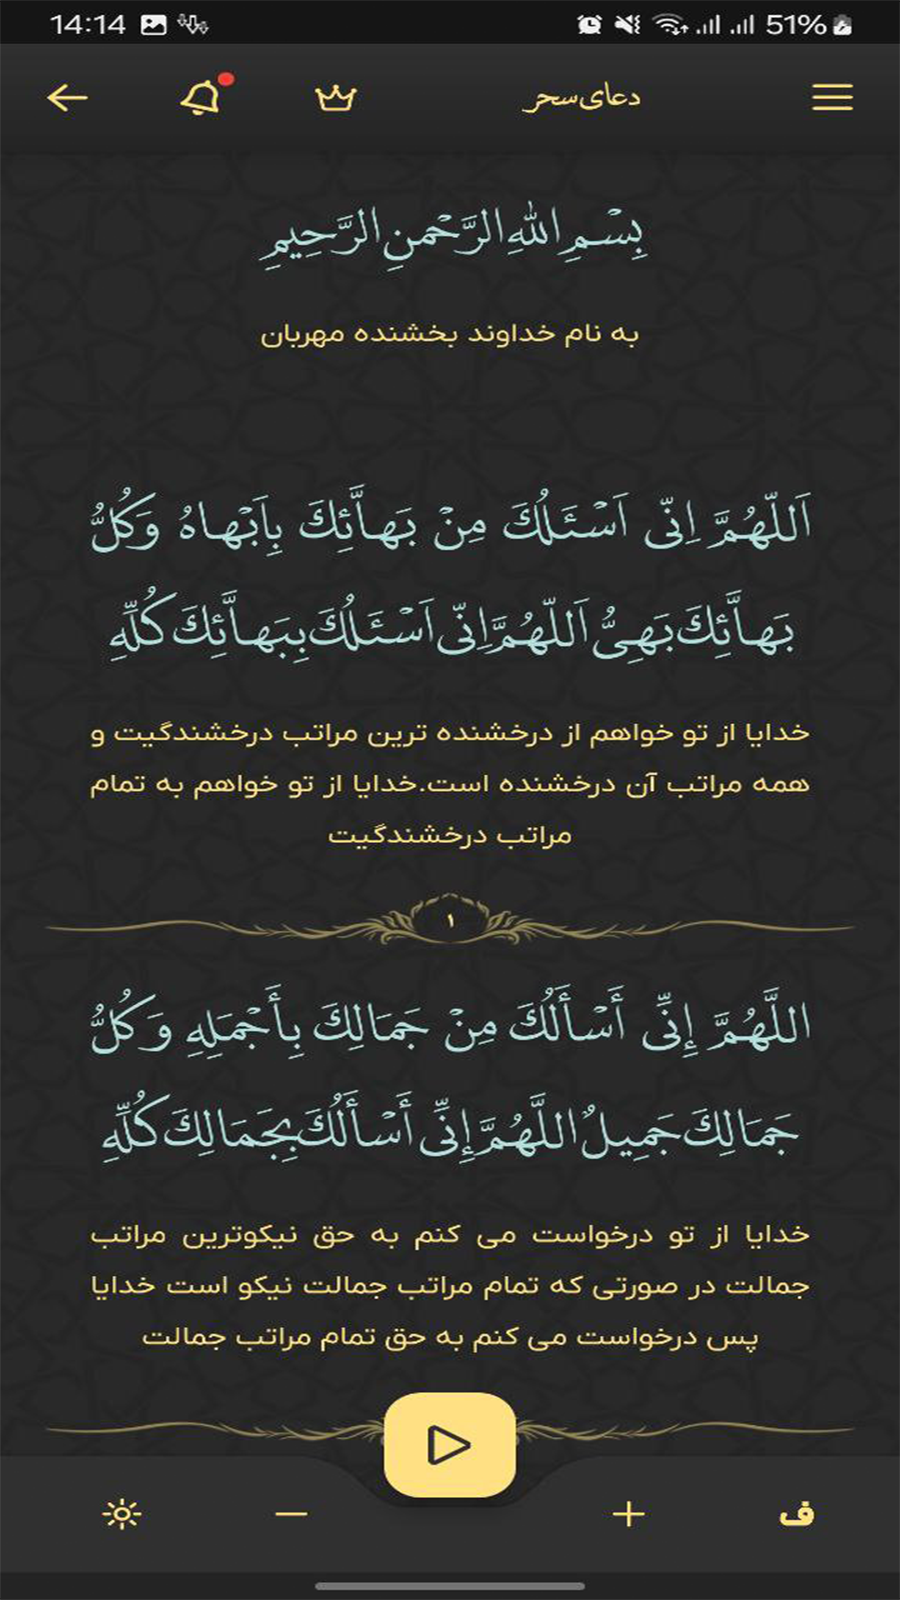 14:14
51%
دعای سحر
بِسْمِ اللهِ الرَّحْمنِ الرَّحِیمِ
به نام خداوند بخشنده مهربان
اَللّهُمَّ اِنّی اَسْئَلُكَ مِنْ بَهاَّئِكَ بِاَبْهاهُ وَكُلُّ
بَهاَّئِكَ بَهِیُّ اَللّهُمَّ اِنّی اَسْئَلُكَ بِبَهاَّئِكَ كُلِّهِ
خدایا از تو خواهم از درخشنده ترین مراتب درخشندگیت و
همه مراتب آن درخشنده است.خدایا از تو خواهم به تمام
مراتب درخشندگیت
۱
اللَّهُمَّ إِنِّی أَسْأَلُكَ مِنْ جَمَالِكَ بِأَجْمَلِهِ وَكُلُّ
جَمَالِكَ جَمِیلٌ اللَّهُمَّ إِنِّی أَسْأَلُكَ بِجَمَالِكَ كُلِّهِ
خدایا از تو درخواست می کنم به حق نیکوترین مراتب
جمالت در صورتی که تمام مراتب جمالت نیکو است خدایا
پس درخواست می کنم به حق تمام مراتب جمالت
ف